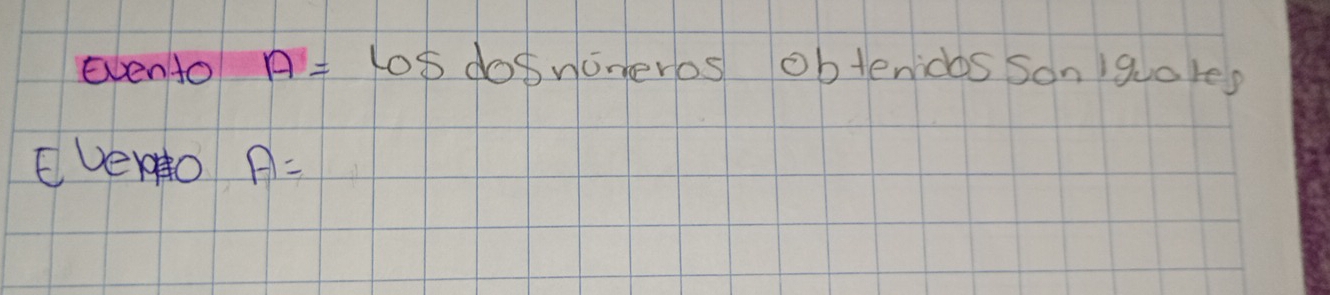 Evento A = los dos números obtenidos son iguales
Evento A =